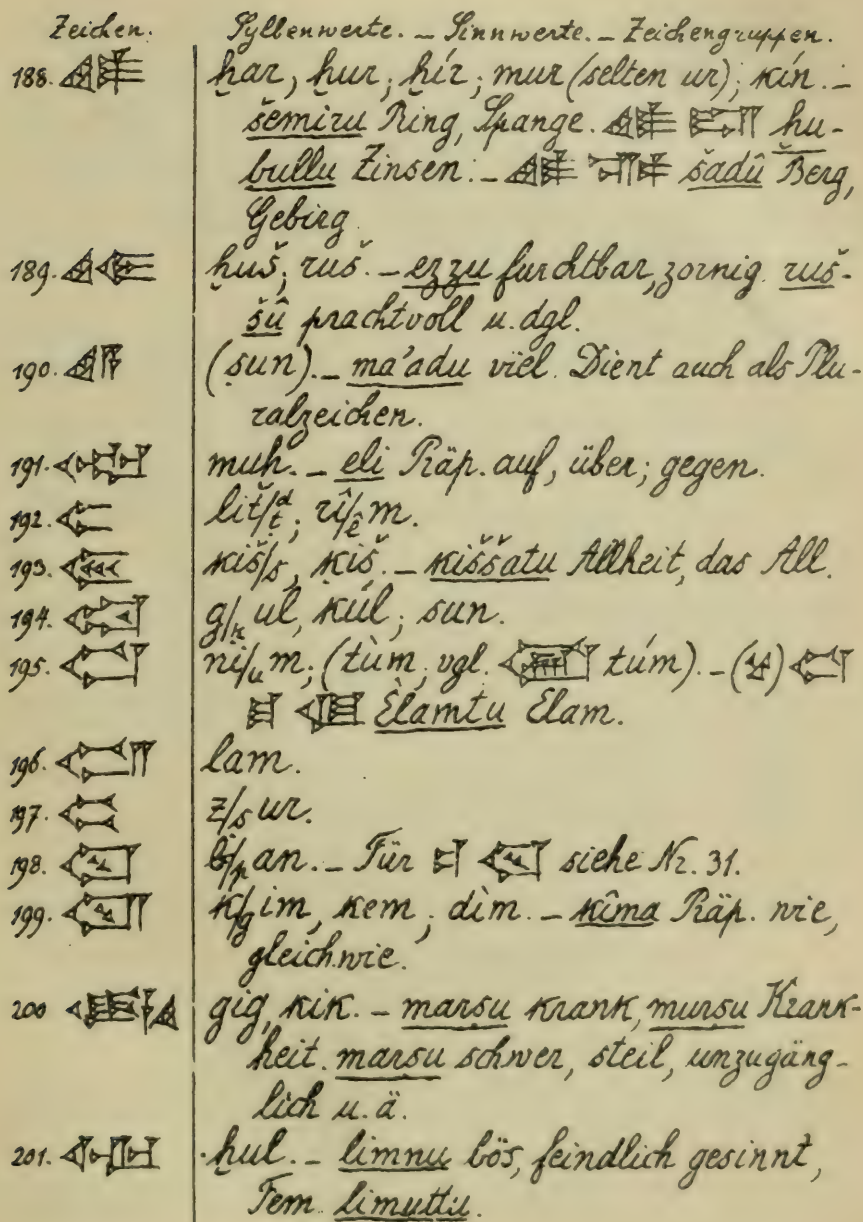 Zeichen. Syllbenwerte. – Sinnwerte. – Zeichengruppen.
188. 𒄯 ḫar, ḫur, ḫír; mur (selten ur); kín. –
šemiru Ring, Spange. ḫu-
bullu Zinsen. – šadû Berg,
Gebirg.
189. ḫuš, ruš. – ezzu furchtbar, zornig. ruš-
šû prachtvoll u. dgl.
190. (sun). – ma'adu viel. Dient auch als Plu-
ralzeichen.
191. muḫ. – eli Präp. auf, über; gegen.
192. lit/d/ṭ; rî/ê m.
193. kiš/s, ḳiš. – kiššatu Allheit, das All.
194. g/k ul, ḳúl; sun.
195. ni/u m; (tùm, vgl. túm). –
Èlamtu Elam.
196. lam.
197. z/s ur.
198. b/p an. – Für siehe Nr. 31.
199. k/g im, kem; dìm. – kîma Präp. wie,
gleichwie.
200 gig, kik. – marṣu krank, murṣu Krank-
heit. marṣu schwer, steil, unzugäng-
lich u. ä.
201. ḫul. – limnu bös, feindlich gesinnt,
Fem. limuttu.